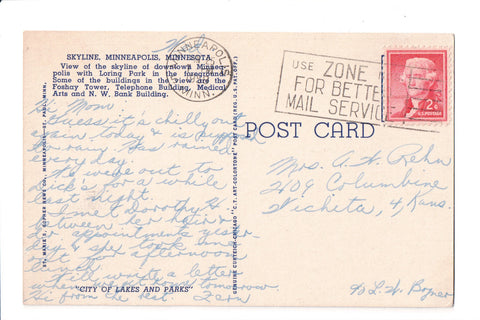 SKYLINE, MINNEAPOLIS, MINNESOTA
View of the skyline of downtown Minnea-
polis with Loring Park in the foreground
Some of the buildings in the view are the
Foshay Tower, Telephone Building, Medical
Arts and N. W. Bank Building.
MINNEAPOLIS
MINN.
USE ZONE N
FOR BETTE
MAIL SERVIC
2¢
U.S. POSTAGE
POST CARD
Hi Mom
Guess it's chilly out
again today & is supposed
to rain. Has rained
every day.
We were out to
Dick's for a while
last night.
I met Dorothy H
between her hair &
dr appointments yester-
day & she took me
out for afternoon
lunch.
Will write a letter
when we get home tomorrow
Hi from the rest. Fern
Mrs. A. W. Rehn
2409 Columbine
Wichita, 4, Kans.
% L. W. Bogner
"CITY OF LAKES AND PARKS"
ST. MARIE'S GOPHER NEWS CO., MINNEAPOLIS—ST. PAUL, MINN.
GENUINE CURTEICH-CHICAGO "C.T. ART-COLORTONE" POST CARD (REG. U.S. PAT. OFF.)